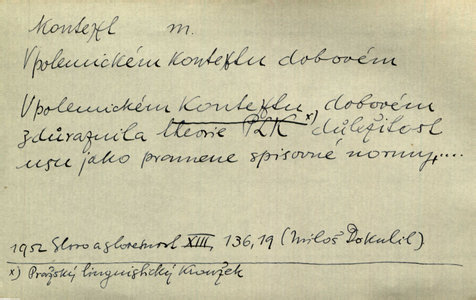 Kontext m.
V polemickém kontextu dobovém
V polemickém kontextu dobovém
zdůraznila theorie PLK x) důležitost
usu jako pramene spisovné normy,....
1952 Slovo a slovesnost XIII, 136,19 (Miloš Dokulil)
x) Pražský linguistický kroužek